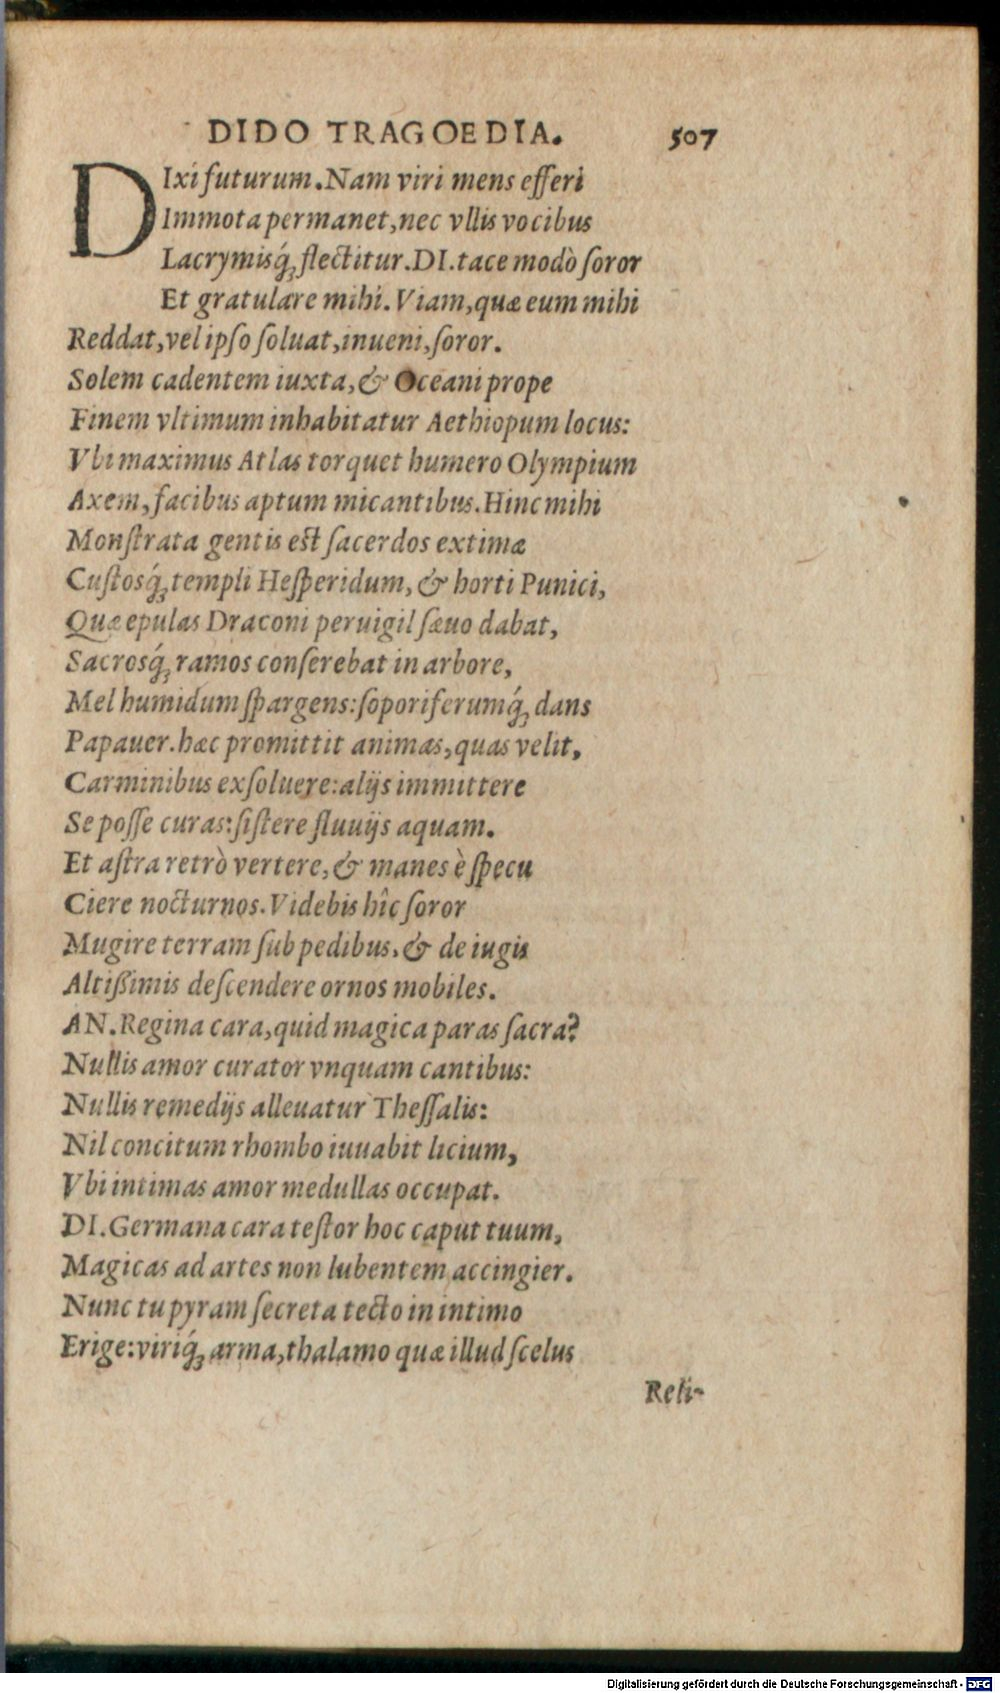 DIDO TRAGOEDIA. 507
DIxi futurum. Nam viri mens efferi
Immota permanet, nec vllis vocibus
Lacrymisq́; flectitur. DI. tace modò soror
Et gratulare mihi. Viam, quæ eum mihi
Reddat, vel ipso soluat, inueni, soror.
Solem cadentem iuxta, & Oceani prope
Finem vltimum inhabitatur Aethiopum locus:
Vbi maximus Atlas torquet humero Olympium
Axem, facibus aptum micantibus. Hinc mihi
Monstrata gentis est sacerdos extimæ
Custosq́; templi Hesperidum, & horti Punici,
Quæ epulas Draconi peruigil sæuo dabat,
Sacrosq́; ramos conserebat in arbore,
Mel humidum spargens: soporiferumq́; dans
Papauer. hæc promittit animas, quas velit,
Carminibus exsoluere: alijs immittere
Se posse curas: sistere fluuijs aquam.
Et astra retrò vertere, & manes è specu
Ciere nocturnos. Videbis hîc soror
Mugire terram sub pedibus. & de iugis
Altißimis descendere ornos mobiles.
AN. Regina cara, quid magica paras sacra?
Nullis amor curator vnquam cantibus:
Nullis remedijs alleuatur Thessalis:
Nil concitum rhombo iuuabit licium,
Vbi intimas amor medullas occupat.
DI. Germana cara testor hoc caput tuum,
Magicas ad artes non lubentem accingier.
Nunc tu pyram secreta tecto in intimo
Erige: viriq́; arma, thalamo quæ illud scelus
Reli-
Digitalisierung gefördert durch die Deutsche Forschungsgemeinschaft - DFG